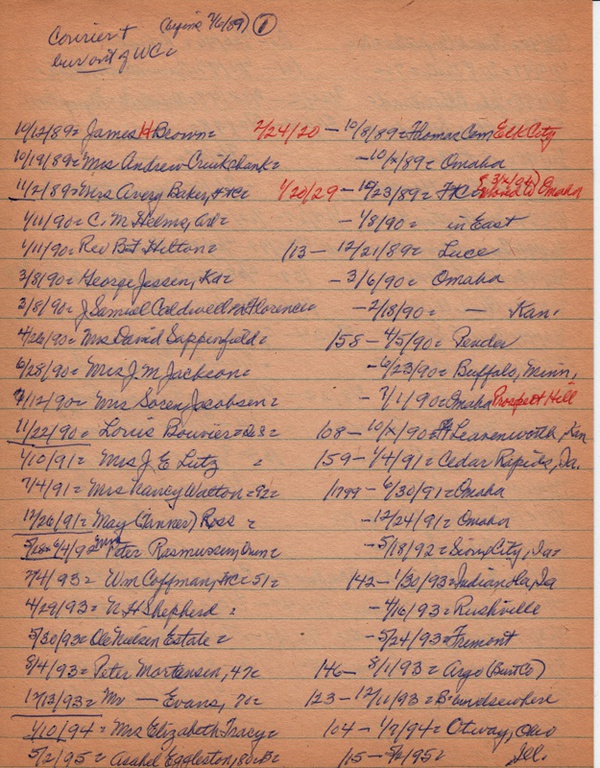 Courier + (begins 7/6/89) ①
bur out of WC=
10/12/89= James H Brown= 2/24/20 — 10/8/89= Thomas Cem Elk City
10/19/89= Mrs Andrew Cruikshank= - 10/ /89= Omaha
11/2/89= Mrs Avery Baker, FtC= 1/20/29 — 10/23/89= FtC 3/2/04) Omaha
1/11/90= C. M Helms, - 1/8/90= in East
1/11/90= Rev B F Hilton= /13 — 12/21/89= Luce
3/8/90= George Jessen, Ka= - 3/6/90= Omaha
3/8/90= J Samuel Caldwell Florence= - 2/18/90= — Kan.
4/26/90= Mrs David Sappenfield= 158 - 4/5/90= Pender
6/28/90= Mrs J. M Jackson= - 6/23/90= Buffalo, Minn,
7/12/90= Mrs Soren Jacobsen= - 7/1/90= Omaha Prospect Hill
11/22/90= Louis Bouvier= 108 - 10/ /90= Ft Leavenworth, Kan
1/10/91= Mrs J E Lutz = 159 - 1/4/91= Cedar Rapids, Ia.
7/4/91= Mrs Nancy Watton= 92= 1799 - 6/30/91= Omaha
12/26/91= May (Tanner) Ross = - 12/24/91= Omaha
6/4/92= Mrs Peter Rasmussen, - 5/18/92= Sioux City, Ia=
7/4 93= Wm Coffman, WC= 51= 142 - 1/30/93= Indianola, Ia
4/29/93= N H Shepherd = - 4/16/93= Rushville
5/30/93= Ole Nielsen Estate= - 5/24/93= Fremont
8/4/93= Peter Mortensen, 47= 146 - 8/1/93= Argo (Burt Co)
12/13/93= Mr — Evans, 70= 123 - 12/11/93=
1/10/94= Mrs Elizabeth Tracy= 104 - 1/7/94= Otway, Ohio
5/2/95= Asahel Eggleston, 80 = /15 - 5/ /95= Ill.